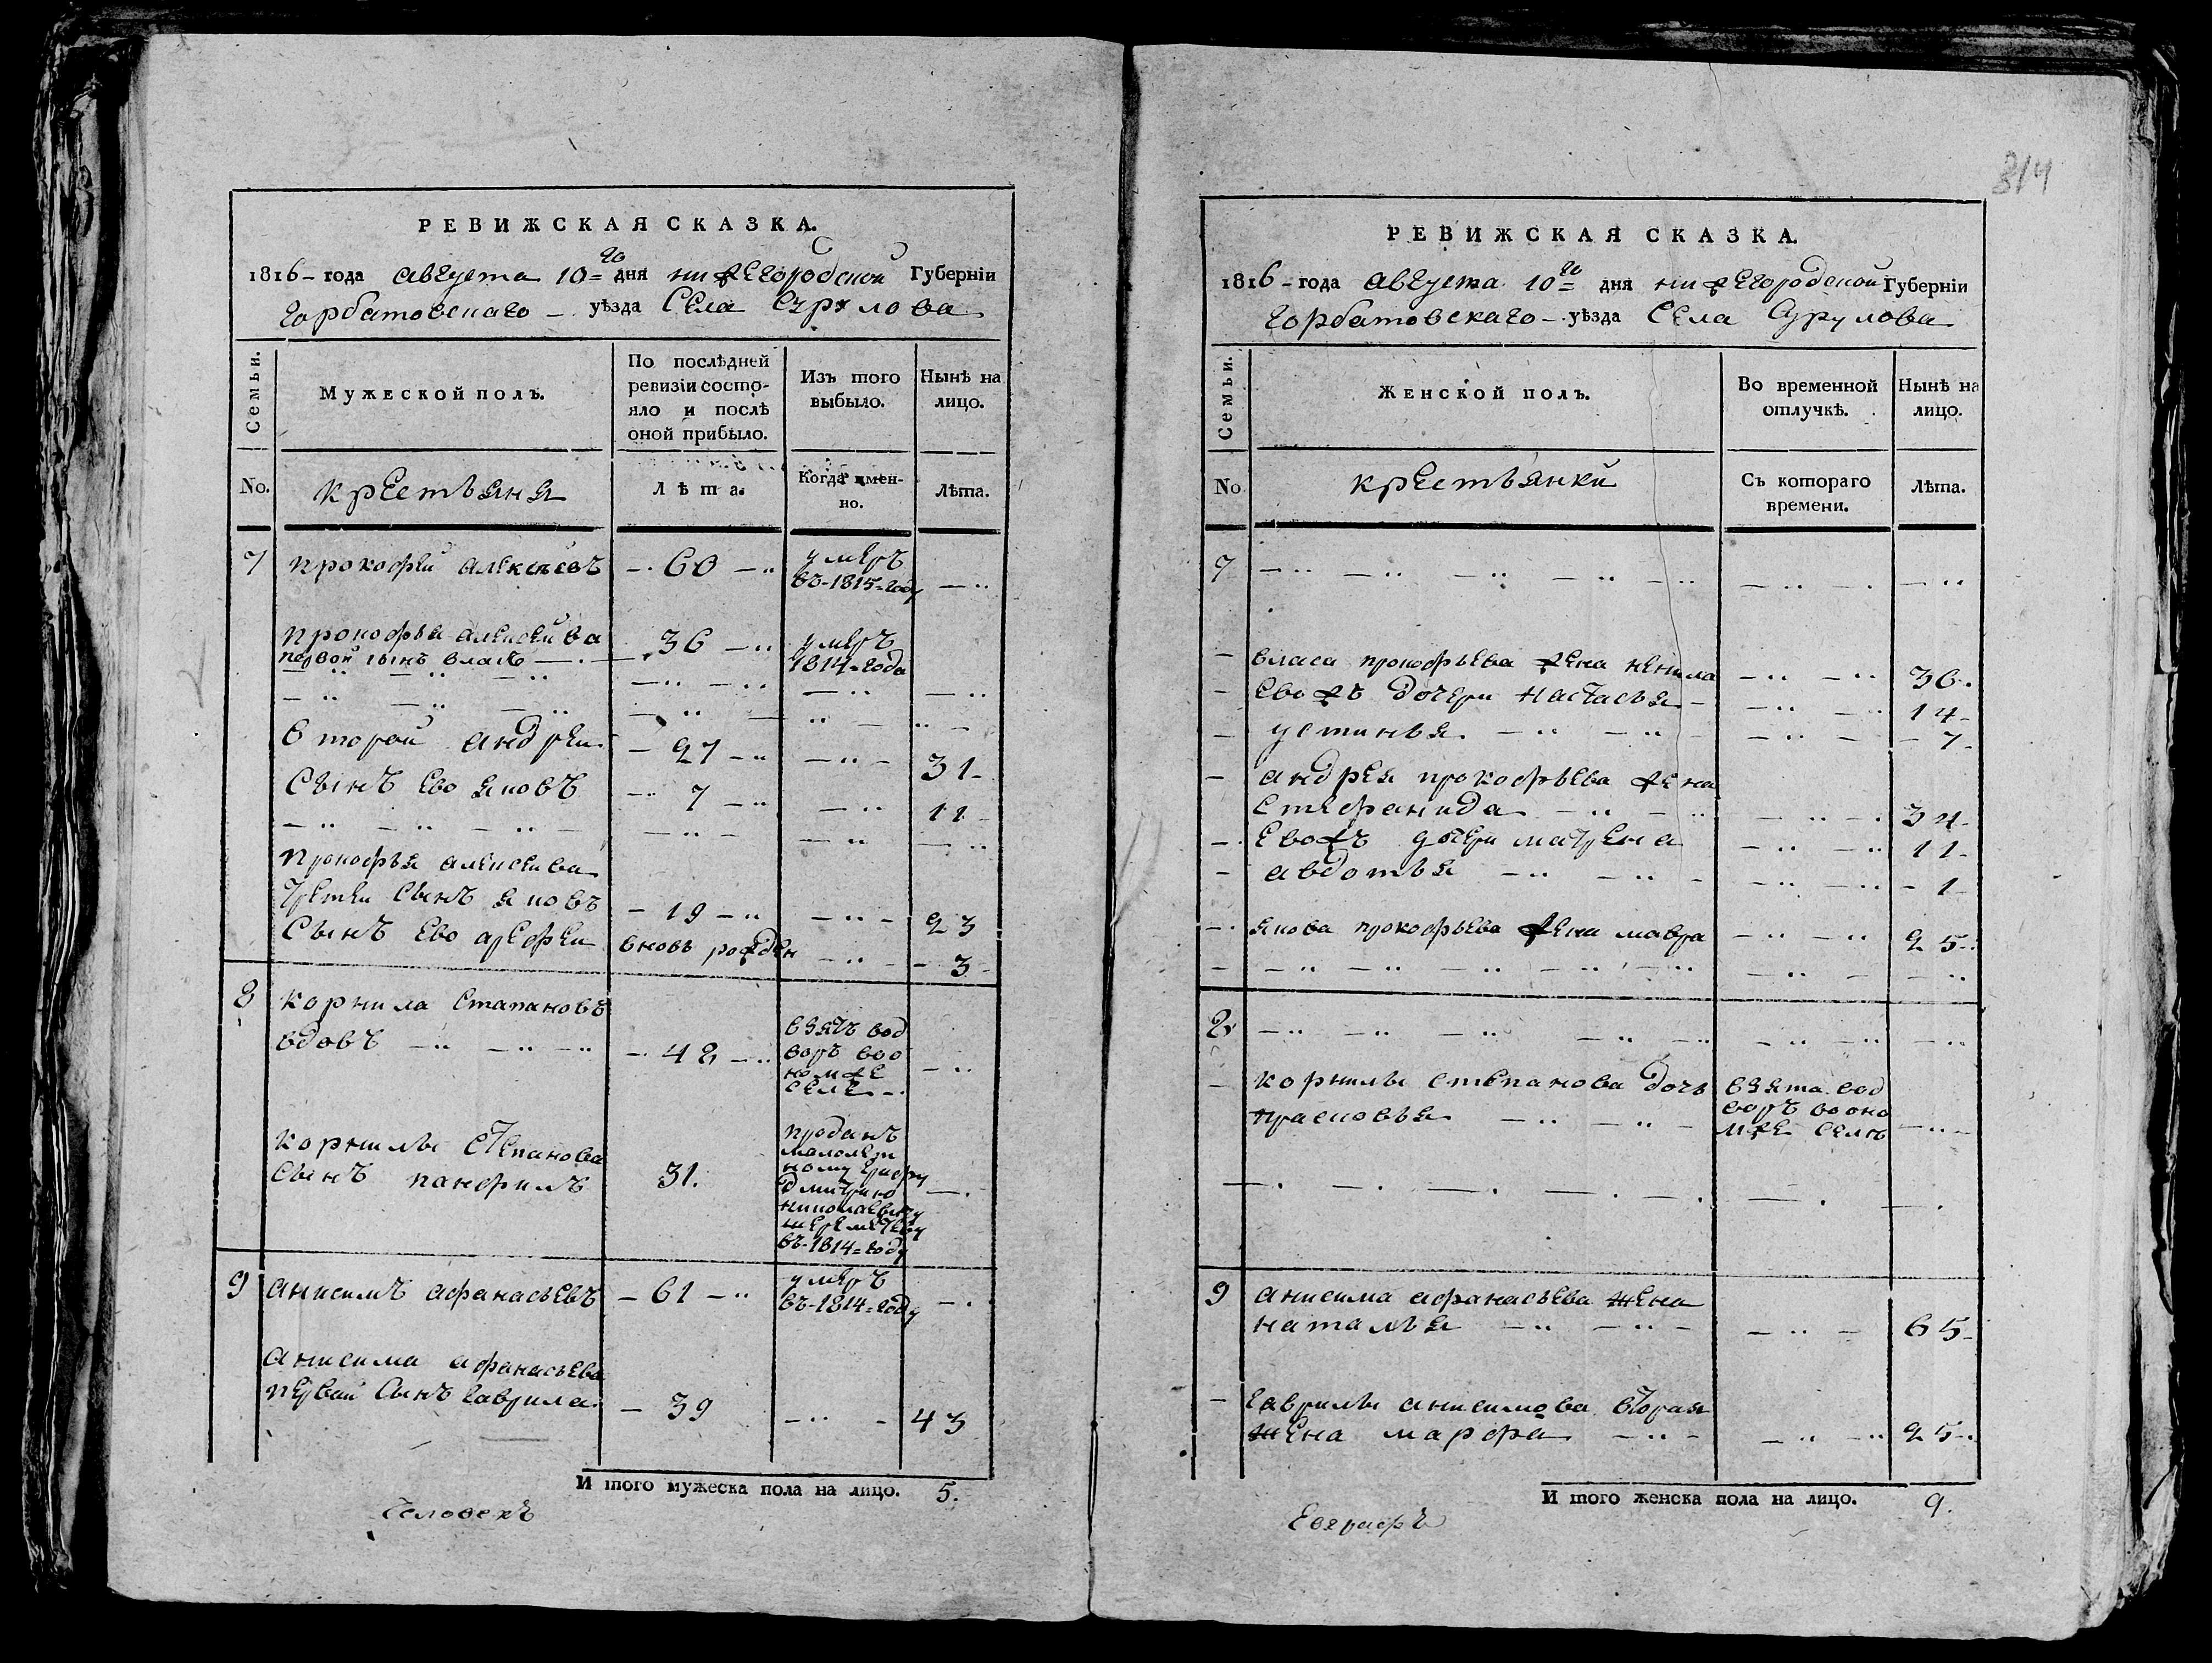 РЕВИЖСКАЯ СКАЗКА.
1816 - года августа 10 = го дня нижегородской Губерніи
горбатовскаго - уѣзда Села Сурулова
Семьи.
Мужеской полъ.
По послѣдней
ревизіи состо-
яло и послѣ
оной прибыло.
Изъ того
выбыло.
Нынѣ на
лицо.
No.
крестьяня
Лѣта.
Когда имен-
но.
Лѣта.
7 прокофеи алексѣевъ - 60 - умеръ
въ - 1815 = году
прокофья алексеива - 36 - умеръ
первой сынъ власъ 1814 = года
второй андреи - 27 - 31 -
Сынъ ево яковъ - 7 - 11 -
прокофья алексеива
третеи Сынъ яковъ - 19 - 23
Сынъ ево арефеи вновь рожден - 3 -
8 корнила Стапановъ
вдовъ - 42 -
взятъ вод
воръ воо
номже
селе -
корнилы Степанова
Сынъ панфилъ 31.
проданъ
малолет
ному графу
дмитрию
николаевичу
шереметеву
въ - 1814 = году
9 анисимъ афанасьевъ - 61 - умеръ
въ - 1814 = году
анисима афанасьева
первай Сынъ гаврила - 39 - 43
И того мужеска пола на лицо. 5.
Человекъ
814
РЕВИЖСКАЯ СКАЗКА.
1816 - года августа 10 = го дня нижегородской Губерніи
горбатовскаго - уѣзда Села Сурулова
Семьи.
Женской полъ.
Во временной
отлучкѣ.
Нынѣ на
лицо.
No
крестьянки
Съ котораго
времени.
Лѣта.
7
- власа прокофьева жена ненила 36 -
- Евожъ дочери настасья - 14 -
- устинья - 7 -
- андрея прокофьева жена
Стефанида 34 -
- Евожъ дочери матрена 11 -
- авдотья - 1 -
- якова прокофьева жена мавра 25 -
8
- корнилы степанова дочь
прасковья
взята вод
воръ вооно
мже селѣ
9 анисима афанасьева жена
наталья 65 -
- гаврилы анисимова вторая
жена марфа 25 -
И того женска пола на лицо. 9.
Евграфъ